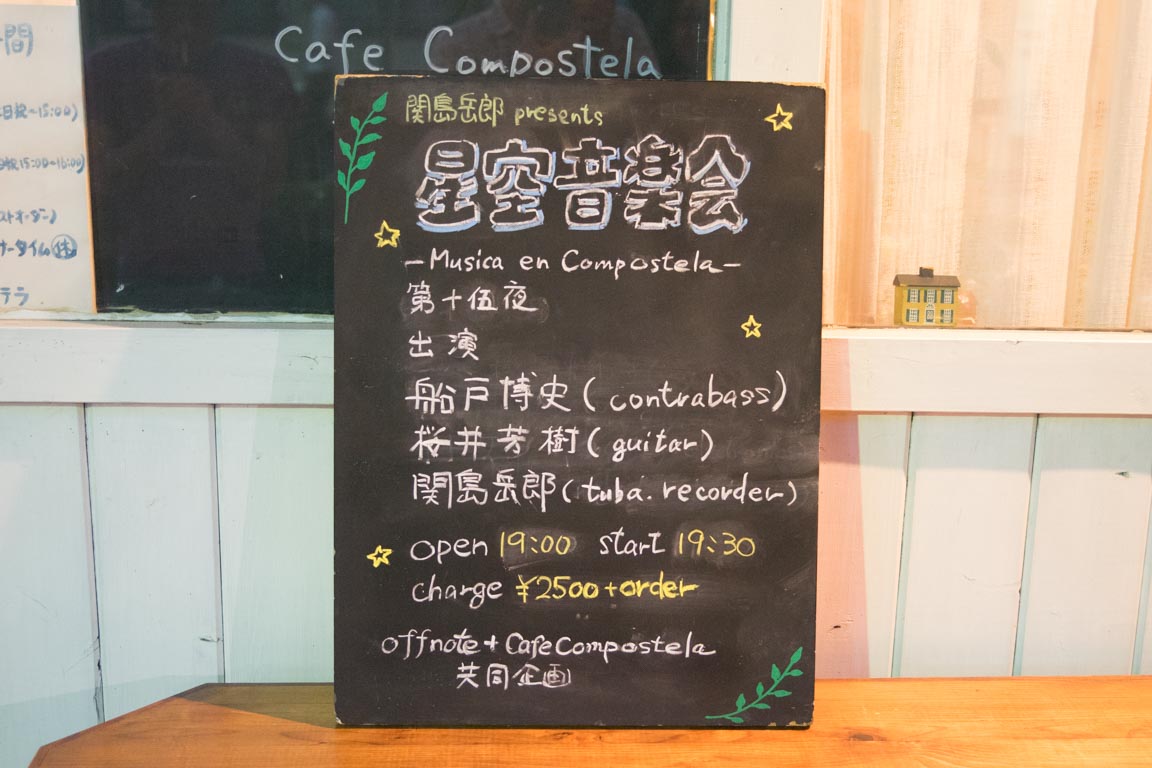 間
日祝~15:00)
祝15:00~16:00)
ストオーダー)
ータイム休
テラ
Cafe Compostela
関島岳郎 presents
星空音楽会
-Musica en Compostela-
第十伍夜
出演
船戸博史(contrabass)
桜井芳樹(guitar)
関島岳郎(tuba.recorder)
open 19:00 start 19:30
charge ¥2500+order
offnote+CafeCompostela
共同企画